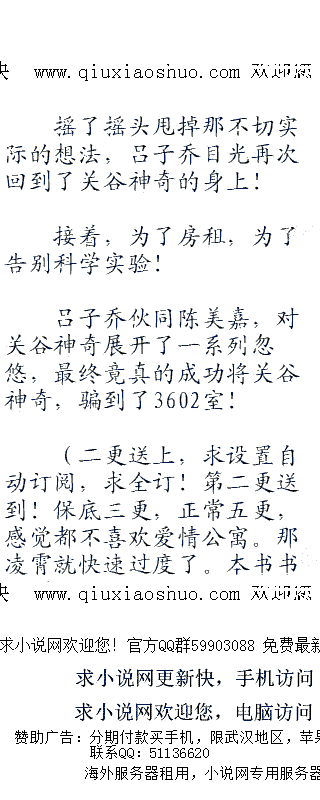 快 www.qiuxiaoshuo.com 欢迎您
摇了摇头甩掉那不切实
际的想法，吕子乔目光再次
回到了关谷神奇的身上！
接着，为了房租，为了
告别科学实验！
吕子乔伙同陈美嘉，对
关谷神奇展开了一系列忽
悠，最终竟真的成功将关谷
神奇，骗到了3602室！
（二更送上，求设置自
动订阅，求全订！第二更送
到！保底三更，正常五更，
感觉都不喜欢爱情公寓。那
凌霄就快速过度了。本书书
快 www.qiuxiaoshuo.com 欢迎您
求小说网欢迎您！官方QQ群59903088 免费最新
求小说网更新快，手机访问
求小说网欢迎您，电脑访问
赞助广告：分期付款买手机，限武汉地区，苹果
联系QQ：51136620
海外服务器租用，小说网专用服务器